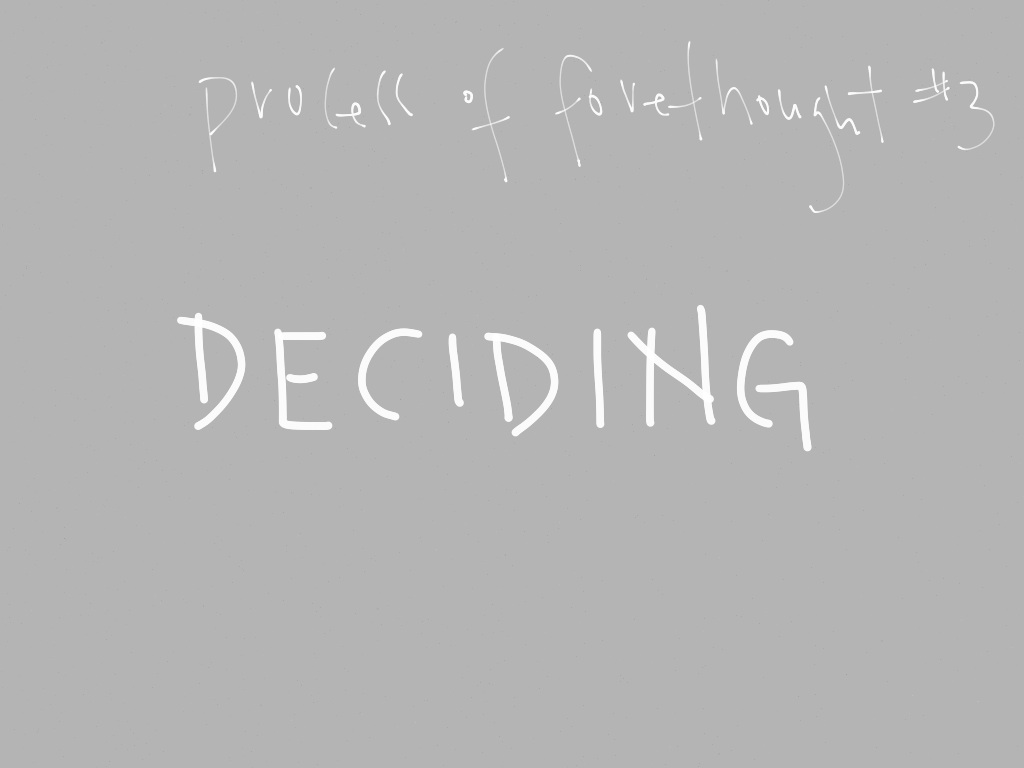 process of forethought #3
DECIDING